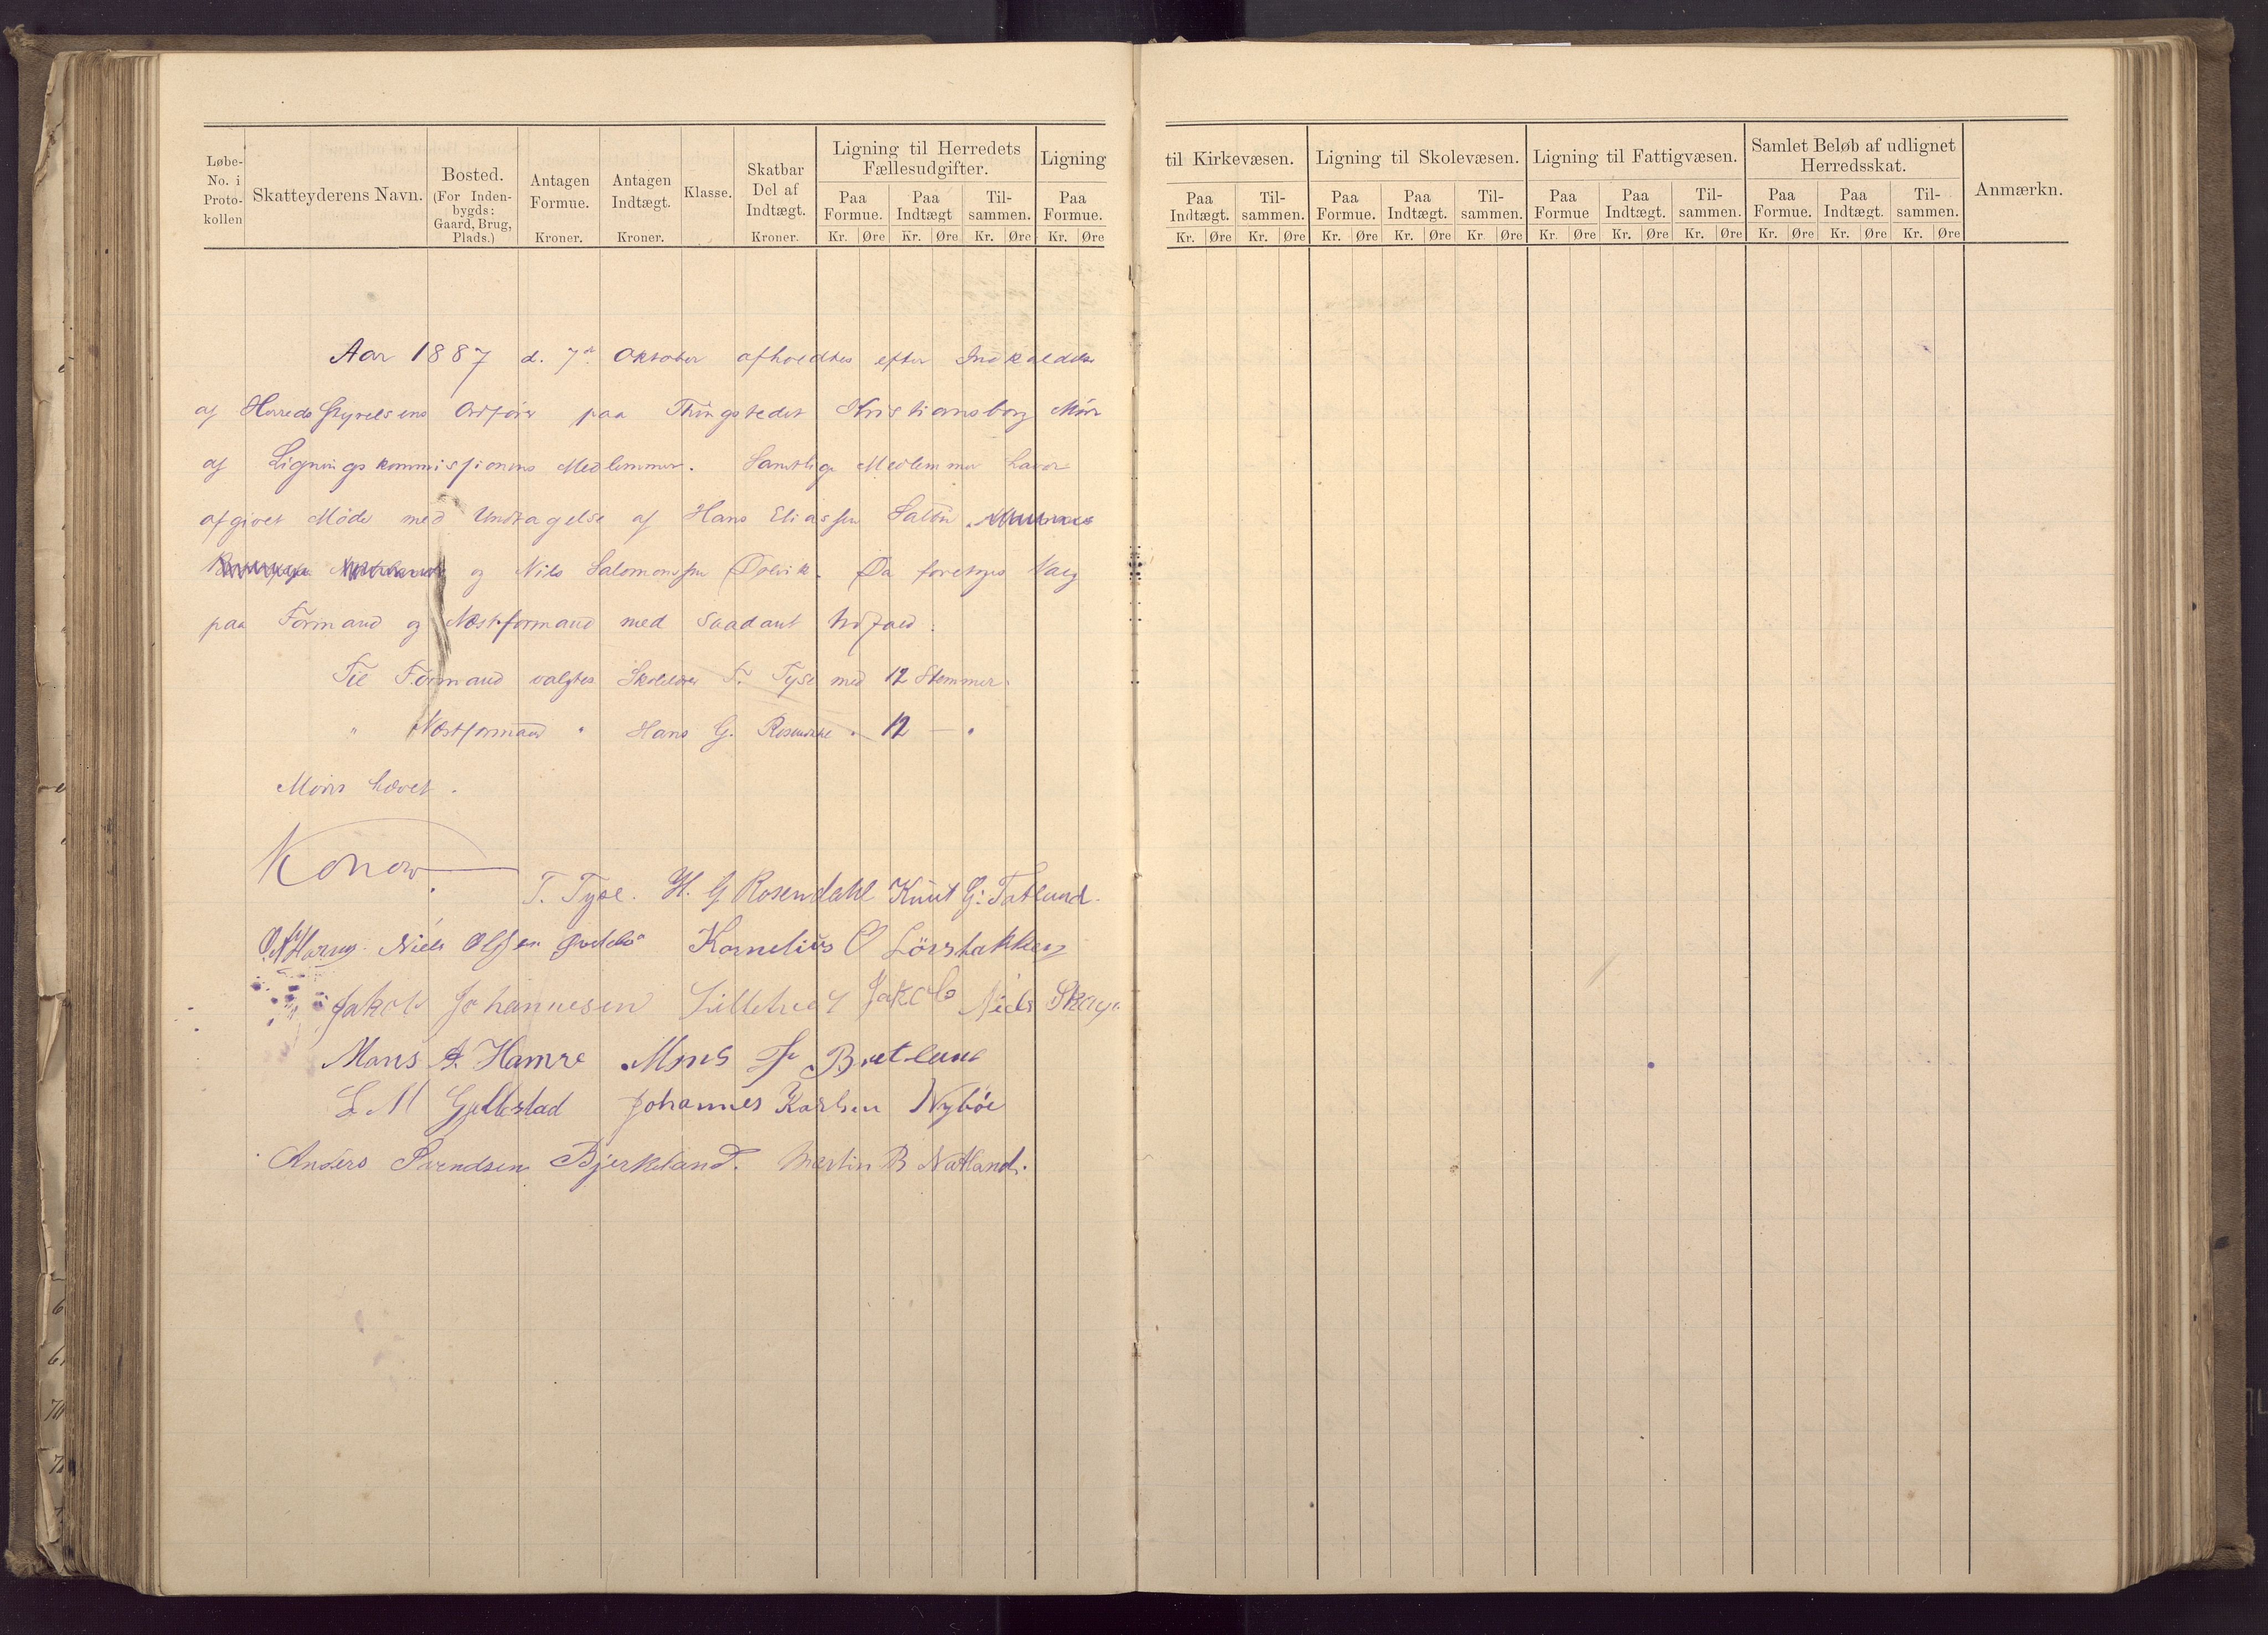 Løbe-No. i Proto-kollen
Skatteyderens Navn.
Bosted. (For Inden-bygds: Gaard, Brug, Plads.)
Antagen Formue. Kroner.
Antagen Indtægt. Kroner.
Klasse.
Skatbar Del af Indtægt. Kroner.
Ligning til Herredets Fællesudgifter.
Paa Formue. Paa Indtægt Til-sammen.
Kr. Øre Kr. Øre Kr. Øre
Ligning
Paa Formue.
Kr. Øre
Aar 1887 d. 7de Oktober afholdtes efter Indkaldelse
af Herredsstyrelsens Ordfører paa Thingstedet Kristiansborg Möde
af Ligningskommissionens Medlemmer. Samtlige Medlemmer havde
afgivet Møde med Undtagelse af Hans Eliassen
og Nils Salomonssen Dolvik. Da foretoges Valg
paa Formand og Næstformand med saadant Udfald.
Til Formand valgtes T. Tyse med 12 Stemmer.
" Næstformand " Hans G. Rosendahl " 12 — "
Mödet hævet.
Konow.
T. Tyse. H. G Rosendahl Knut G: Fatland.
Niels Olsen Kornelius O Lövstakken
Jakob Johannesen Jakob Niels
Mons A. Hamre Mons Bretland
L M Gjellestad Johannes Karlsen Nybøe
Anders Bjerkeland. Martin B Natland.
til Kirkevæsen.
Paa Indtægt. Til-sammen.
Kr. Øre Kr. Øre
Ligning til Skolevæsen.
Paa Formue. Paa Indtægt. Til-sammen.
Kr. Øre Kr. Øre Kr. Øre
Ligning til Fattigvæsen.
Paa Formue Paa Indtægt. Til-sammen.
Kr. Øre Kr. Øre Kr. Øre
Samlet Beløb af udlignet Herredsskat.
Paa Formue. Paa Indtægt. Til-sammen.
Kr. Øre Kr. Øre Kr. Øre
Anmærkn.